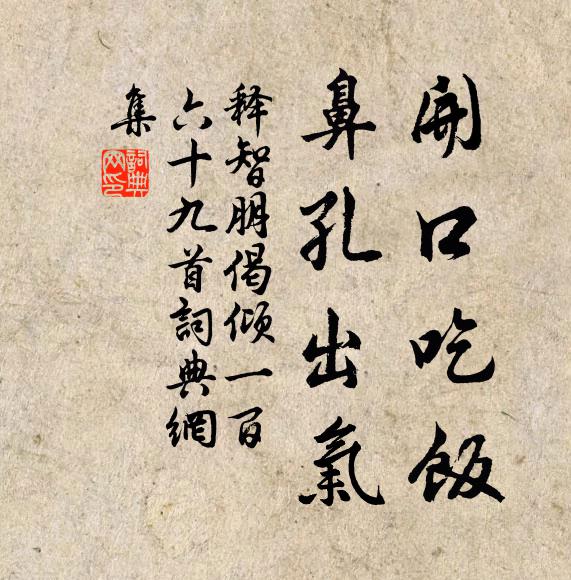 開口吃飯
鼻孔出氣
释智朋偈倾一百
六十九首詞典網
集
詞典
网印